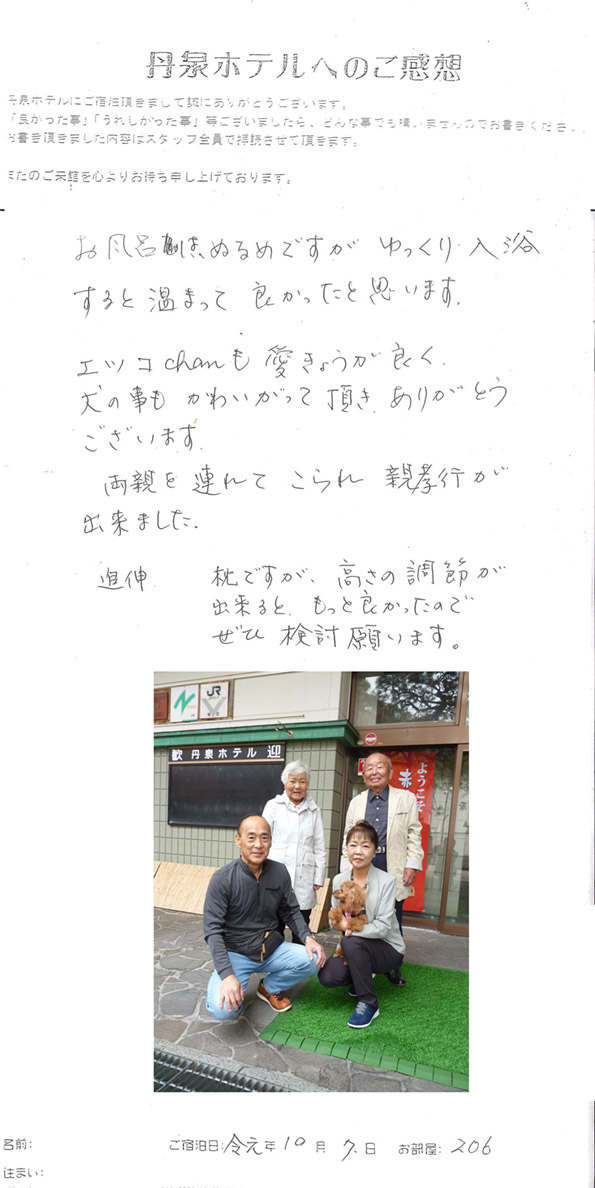 丹泉ホテルへのご感想
丹泉ホテルにご宿泊頂きまして誠にありがとうございます。
「良かった事」「うれしかった事」等ございましたら、どんな事でも構いませんのでお書きくださ
お書き頂きました内容はスタッフ全員で拝読させて頂きます。
またのご来館を心よりお待ち申し上げております。
お風呂は、ぬるめですが ゆっくり入浴
すると温まって 良かったと思います。
エツコchanも 愛きょうが良く、
犬の事も かわいがって頂き、ありがとう
ございます。
両親を連れて こられ 親孝行が
出来ました。
進伸 枕ですが、高さの調節が
出来ると、もっと良かったので
ぜひ 検討願います。
N JR
歓 丹泉ホテル 迎
ようこそ
赤
名前: ご宿泊日: 令元年 10月 7日 お部屋: 206
住まい: